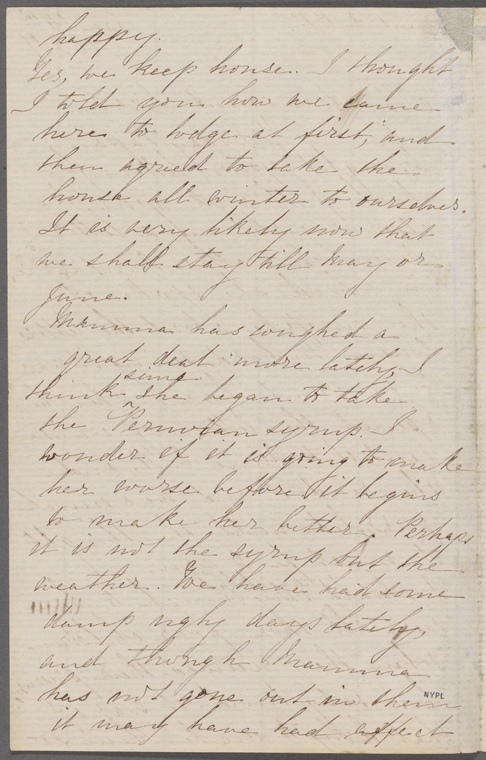 happy.
Yes, we keep house. I thought
I told you how we came
here to lodge at first, and
then agreed to take the
house all winter to ourselves.
It is very likely now that
we shall stay till May or
June.
Mamma has coughed a
great deal more lately, I
think since she began to take
the Peruvian syrup. I
wonder if it is going to make
her worse before it begins
to make her better. Perhaps
it is not the syrup but the
weather. We have had some
damp ugly days lately,
and though Mamma
has not gone out in them
NYPL
it may have had affect